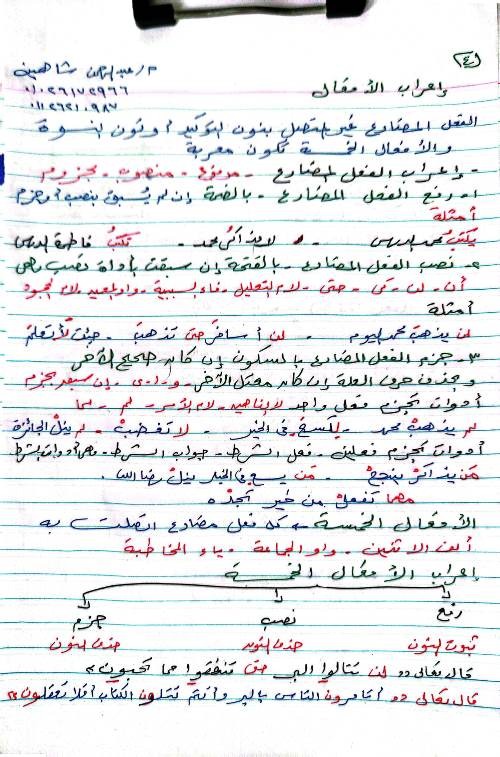 (٤)
م/عبدالرحمن شاهين
٠١٠٢٦١٧٢٩٦٦
إعراب الأفعال
الفعل المضارع غير المتصل بنون التوكيد أو نون النسوة
والأفعال الخمسة تكون معربة
- وإعراب الفعل المضارع - مرفوع - منصوب - مجزوم
١- رفع الفعل المضارع - بالضمة إن لم يُسبق بنصب أو جزم
أمثلة
يكتبُ محمد الدرس - محمد - تكتبُ فاطمة الدرس
٢- نصب الفعل المضارع - بالفتحة إن سبقت بأداة نصب وهى
أن - لن - كى - حتى - لام التعليل - فاء السببية - واو المعية - لام الجحود
أمثلة
لن يذهبَ محمد اليوم - لن أسافرَ حتى تذهبَ - جئت لأتعلمَ
٣- جزم الفعل المضارع بالسكون إن كان صحيح الآخر
وبحذف حرف العلة إن كان معتل الآخر - و - ا - ى - إن سبق بجزم
أدوات تجزم فعل واحد لا الناهية - لام الأمر - لم - لما
لم يذهبْ محمد - لِتسعَ فى الخير - لا تغضبْ - لم ينلْ الجائزة
أدوات تجزم فعلين - فعل الشرط - جواب الشرط - وهى أدوات الشرط
مَن يذاكرْ ينجحْ - مَن يسعَ فى الخير ينلْ رضا الله
مهما تفعلْ من خير تجدْه
الأفعال الخمسة - كل فعل مضارع اتصلت به
ألف الاثنين - واو الجماعة - ياء المخاطبة
إعراب الأفعال الخمسة
رفع نصب جزم
ثبوت النون حذف النون حذف النون
قال تعالى " لن تنالوا البر حتى تنفقوا مما تحبون "
قال تعالى " أتأمرون الناس بالبر وأنتم تتلون الكتاب أفلا تعقلون "